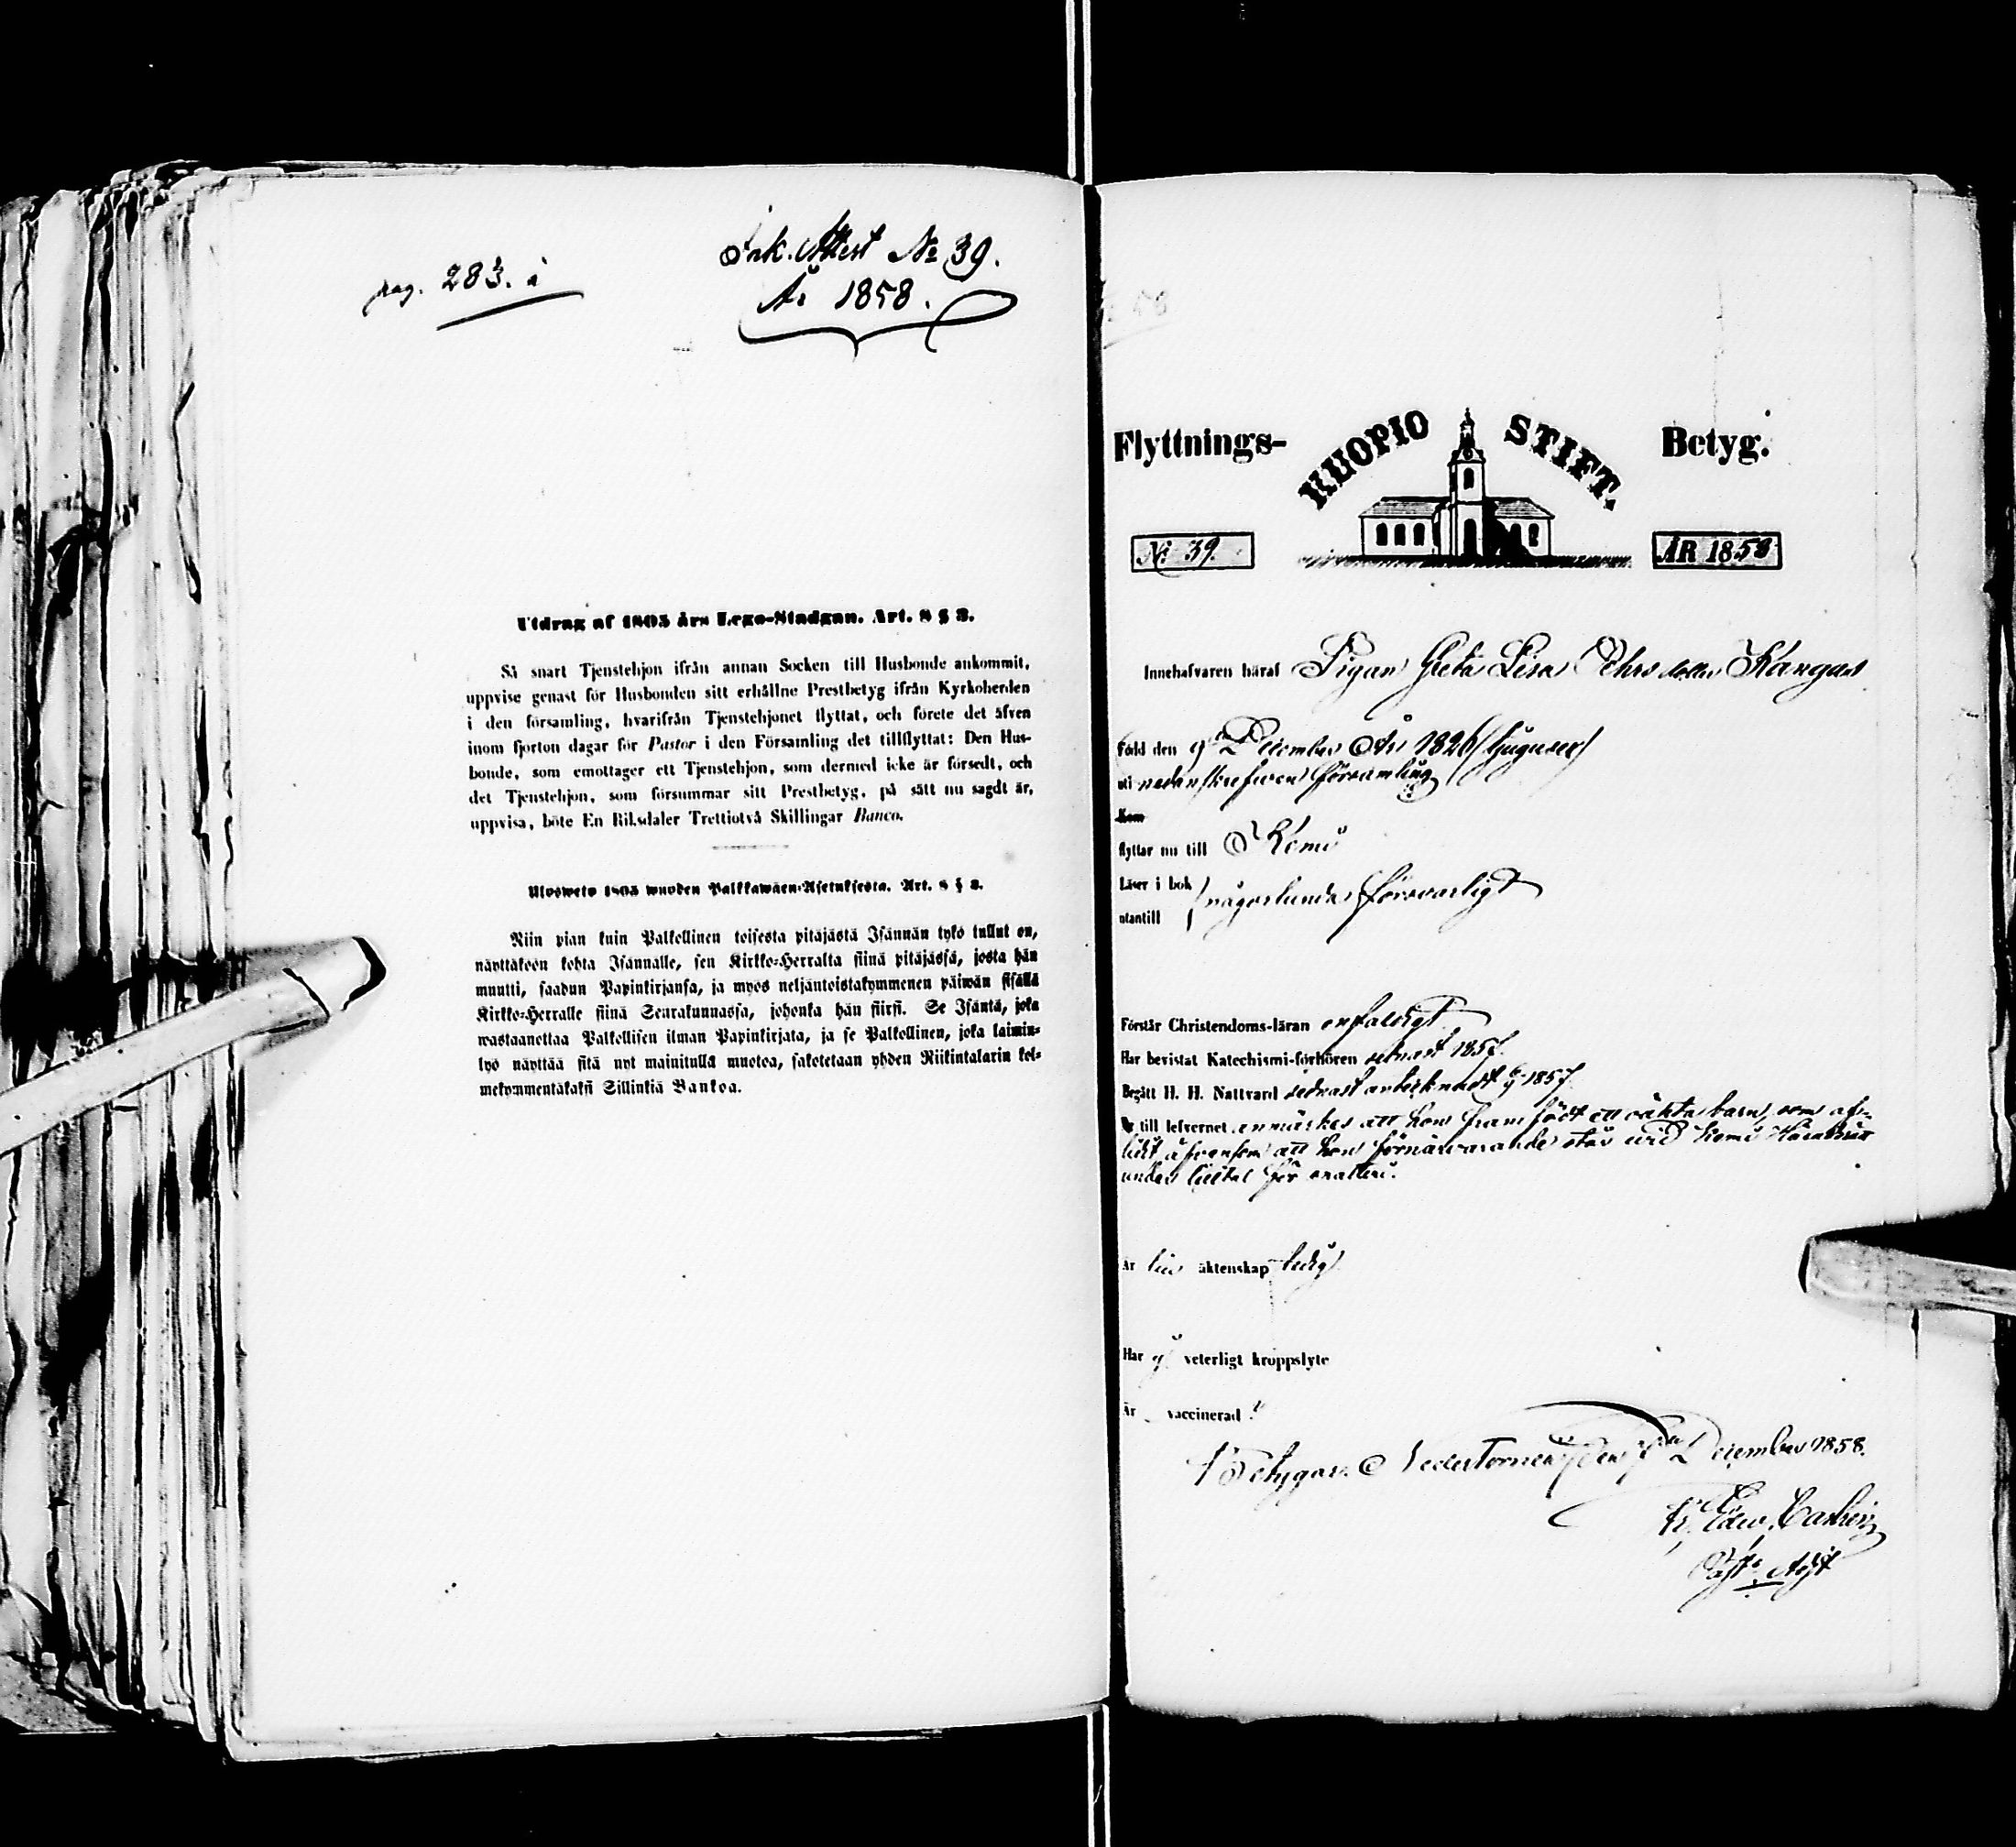 pag. 283. i
Ink. Attest № 39.
År 1858.
Utdrag af 1805 års Lego-Stadgan. Art. 8 § 3.
Så snart Tjenstehjon ifrån annan Socken till Husbonde ankommit,
uppvise genast för Husbonden sitt erhållne Prestbetyg ifrån Kyrkoherden
i den församling, hvarifrån Tjenstehjonet flyttat, och förete det äfven
inom fjorton dagar för Pastor i den Församling det tillflyttat: Den Hus-
bonde, som emottager ett Tjenstehjon, som dermed icke är försedt, och
det Tjenstehjon, som försummar sitt Prestbetyg, på sätt nu sagdt är,
uppvisa, böte En Riksdaler Trettiotvå Skillingar Banco.
Ulosweto 1805 wuoden Palkkawäen-Asetuksesta. Art. 8 § 3.
Niin pian kuin Palkollinen toisesta pitäjästä Isännän tykö tullut on,
näyttäköön kohta Isännälle, sen Kirkko-Herralta siinä pitäjässä, josta hän
muutti, saadun Papinkirjansa, ja myös neljäntoistakymmenen päiwän sisällä
Kirkko-Herralle siinä Seurakunnassa, johonka hän siirsi. Se Isäntä, joka
wastaanottaa Palkollisen ilman Papinkirjata, ja se Palkollinen, joka laimin-
lyö näyttää sitä nyt mainitulla muotoa, sakotetaan yhden Riikintalarin kol-
mekymmentäkaksi Sillinkiä Bankoa.
Flyttnings- KUOPIO STIFT. Betyg.
№ 39. ÅR 1858
Innehafvaren häraf Pigan Greta Lisa Pehrsdotter Kangas
Född den 9 December År 1826 (tjugusex)
uti nedanskrefven församling
Kom
flyttar nu till Kemi
Läser i bok någorlunda försvarligt
utantill
Förstår Christendoms-läran enfaldigt
Har bevistat Katechismi-förhören sednast 1857.
Begått H. H. Nattvard sednast antecknadt 1857
Är till lefvernet anmärkes att hon framfödt ett oäkta barn, som af-
lidit äfvensom att hon förnärvarande står vid Kemi Häradsrätt
under tilltal för snatteri.
Är till äktenskap ledig
Har ej veterligt kroppslyte
Är vaccinerad
Betygar. Neder Torneå den December 1858.
Edw. Castrén
Past. Adjt